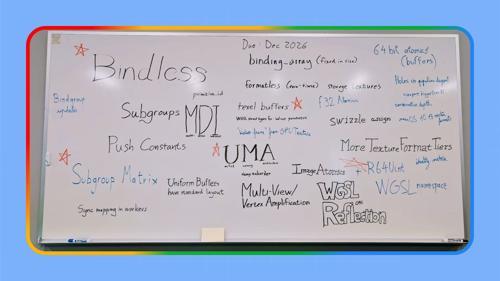 Due: Dec 2026
Bindless
binding_array (fixed in size)
64 bit atomics
(buffers)
formatless (run-time) storage textures
primitive_id
Bindgroup
updates
Subgroups
MDI
texel buffers
f32
swizzle assign
Push Constants
UMA
More Texture Format Tiers
Image Atomics
+ R64Uint
Subgroup Matrix
Uniform Buffers
have standard layout
Multi-View/
Vertex Amplification
WGSL
on
Reflection
WGSL namespace
Sync mapping in workers